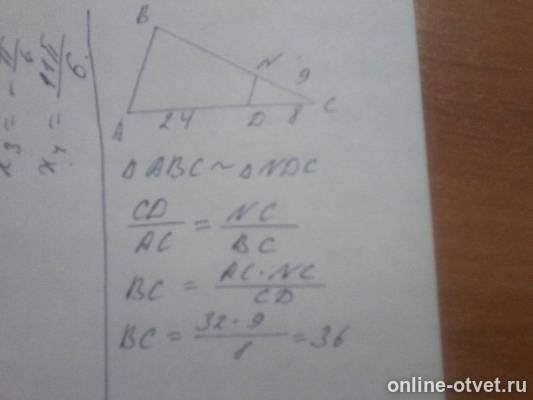 x₃ = -π/6
x₄ = 11π/6
B
N
9
A
24
D
8
C
△ABC ~ △NDC
CD/AC = NC/BC
BC = AC·NC/CD
BC = 32·9/8 = 36
online-otvet.ru